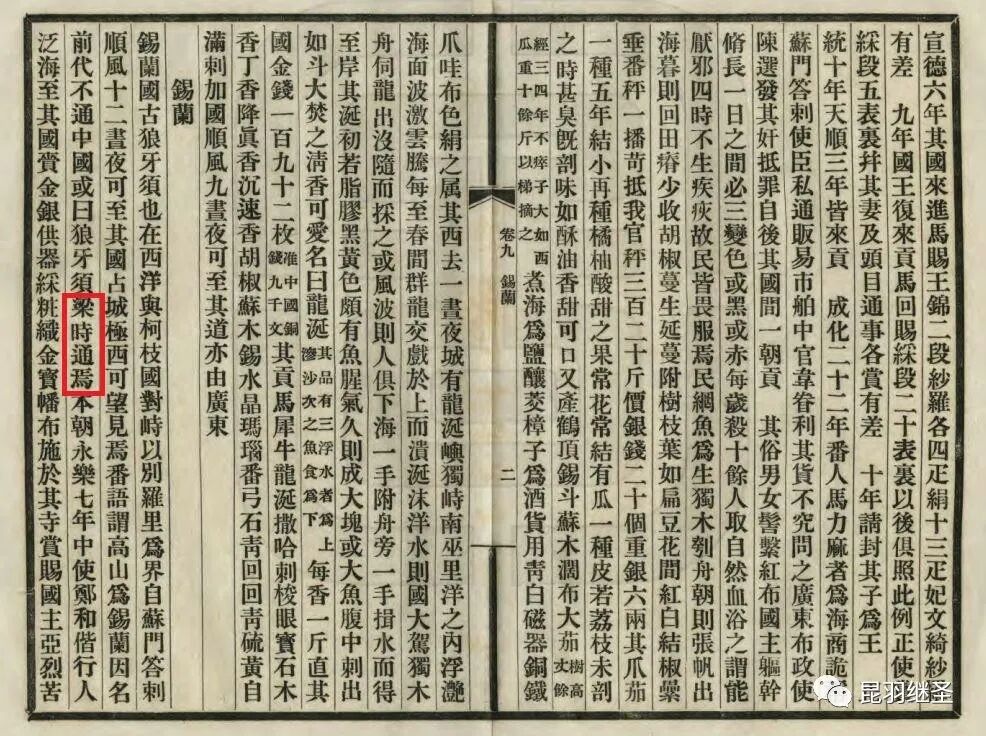 宣德六年其國來進馬賜王錦二段紗羅各四疋絹十三疋妃文綺紗
有差　九年國王復來貢馬回賜綵段二十表裏以後俱照此例正使
綵段五表裏并其妻及頭目通事各賞有差　十年請封其子為王
統十年天順三年皆來貢　成化二十二年番人馬力麻者為海商詭
蘇門答剌使臣私通販易市舶中官韋眷利其貨不究問之廣東布政使
陳選發其奸抵罪自後其國間一朝貢　其俗男女髻繫紅布國主軀幹
脩長一日之間必三變色或黑或赤每歲殺十餘人取自然血浴之謂能
厭邪四時不生疾疢故民皆畏服焉民網魚為生獨木刳舟朝則張帆出
海暮則回田瘠少收胡椒蔓生延蔓附樹枝葉如扁豆花間紅白結椒纍
垂番秤一播苛抵我官秤三百二十斤價銀錢二十個重銀六兩其爪茄
一種五年結小再種橘柚酸甜之果常花常結有瓜一種皮若荔枝未剖
之時甚臭既剖味如酥油香甜可口又產鶴頂錫斗蘇木濶布大茄樹高丈餘
經三四年不瘁子大如西瓜重十餘斤以梯摘之煮海為鹽釀茭樟子為酒貨用青白磁器銅鐵
卷九　錫蘭　二
爪哇布色絹之属其西去一晝夜城有龍涎嶼獨峙南巫里洋之內浮灔
海面波激雲騰每至春間群龍交戲於上而潰涎沫洋水則國大駕獨木
舟伺龍出沒隨而採之或風波則人俱下海一手附舟旁一手揖水而得
至岸其涎初若脂膠黑黃色頗有魚腥氣久則成大塊或大魚腹中刺出
如斗大焚之清香可愛名曰龍涎其品有三浮水者為上滲沙次之魚食為下每香一斤直其
國金錢一百九十二枚准中國銅錢九千文其貢馬犀牛龍涎撒哈剌梭眼寶石木
香丁香降眞香沉速香胡椒蘇木錫水晶瑪瑙番弓石青回回青硫黃自
滿刺加國順風九晝夜可至其道亦由廣東
錫蘭
錫蘭國古狼牙須也在西洋與柯枝國對峙以別羅里為界自蘇門答剌
順風十二晝夜可至其國占城極西可望見焉番語謂高山為錫蘭因名
前代不通中國或曰狼牙須梁時通焉本朝永樂七年中使鄭和偕行人
泛海至其國賫金銀供器綵粧織金寶幡布施於其寺賞賜國主亞烈苦
昆羽继圣